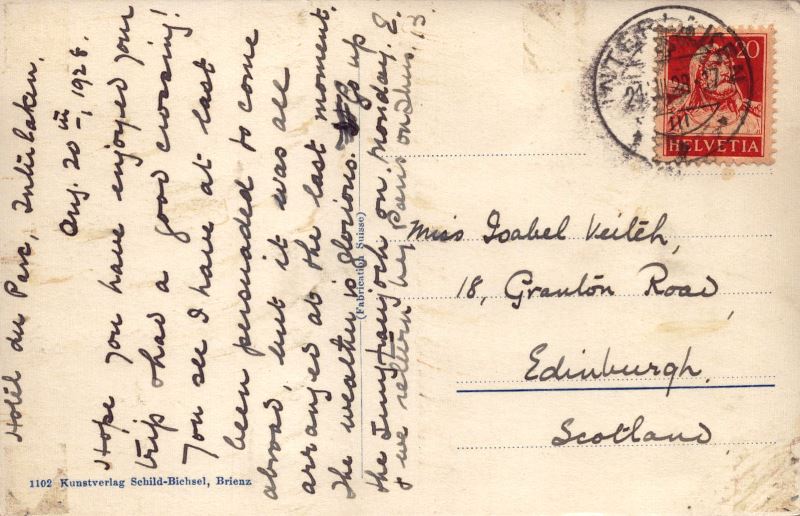 Hotel du Parc, Interlaken,
Aug. 20th, 1928.
Hope you have enjoyed your
trip & had a good crossing!
You see I have at last
been persuaded to come
abroad, but it was all
arranged at the last moment.
The weather is glorious. Go up
the Jungfraujoch on Monday. E.
& we return by Paris on Thurs,
(Fabrication Suisse)
1102 Kunstverlag Schild-Bichsel, Brienz
INTERLAKEN
20
HELVETIA
Miss Isabel Veitch,
18, Granton Road,
Edinburgh,
Scotland